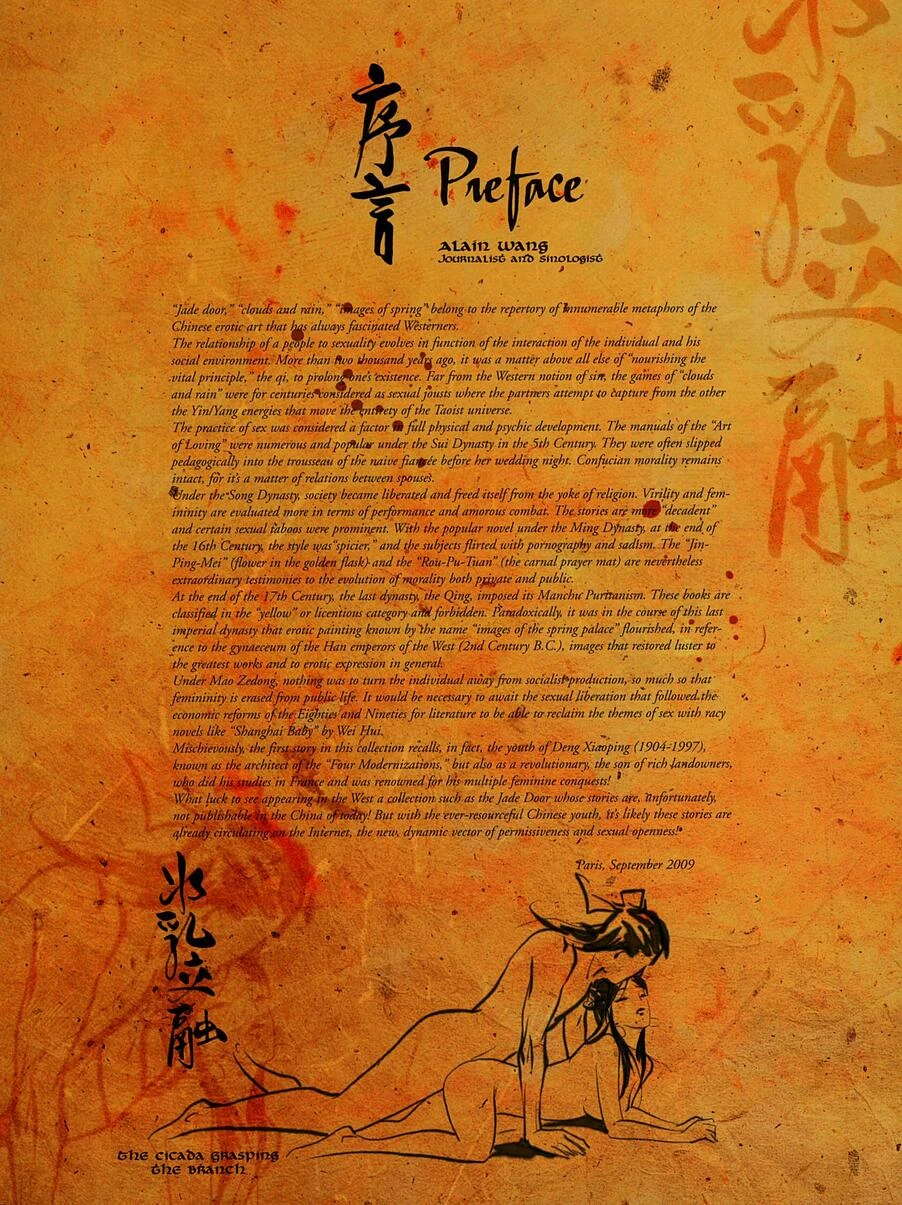 序言
Preface
Alain Wang
Journalist and Sinologist
"Jade door," "clouds and rain," "images of spring" belong to the repertory of innumerable metaphors of the
Chinese erotic art that has always fascinated Westerners.
The relationship of a people to sexuality evolves in function of the interaction of the individual and his
social environment. More than two thousand years ago, it was a matter above all else of "nourishing the
vital principle," the qi, to prolong one's existence. Far from the Western notion of sin, the games of "clouds
and rain" were for centuries considered as sexual jousts where the partners attempt to capture from the other
the Yin/Yang energies that move the entirety of the Taoist universe.
The practice of sex was considered a factor in full physical and psychic development. The manuals of the "Art
of Loving" were numerous and popular under the Sui Dynasty in the 5th Century. They were often slipped
pedagogically into the trousseau of the naive fiancée before her wedding night. Confucian morality remains
intact, for it's a matter of relations between spouses.
Under the Song Dynasty, society became liberated and freed itself from the yoke of religion. Virility and fem-
ininity are evaluated more in terms of performance and amorous combat. The stories are more "decadent"
and certain sexual taboos were prominent. With the popular novel under the Ming Dynasty, at the end of
the 16th Century, the style was "spicier," and the subjects flirted with pornography and sadism. The "Jin-
Ping-Mei" (flower in the golden flask) and the "Rou-Pu-Tuan" (the carnal prayer mat) are nevertheless
extraordinary testimonies to the evolution of morality both private and public.
At the end of the 17th Century, the last dynasty, the Qing, imposed its Manchu Puritanism. These books are
classified in the "yellow" or licentious category and forbidden. Paradoxically, it was in the course of this last
imperial dynasty that erotic painting known by the name "images of the spring palace" flourished, in refer-
ence to the gynaeceum of the Han emperors of the West (2nd Century B.C.), images that restored luster to
the greatest works and to erotic expression in general.
Under Mao Zedong, nothing was to turn the individual away from socialist production, so much so that
femininity is erased from public life. It would be necessary to await the sexual liberation that followed the
economic reforms of the Eighties and Nineties for literature to be able to reclaim the themes of sex with racy
novels like "Shanghai Baby" by Wei Hui.
Mischievously, the first story in this collection recalls, in fact, the youth of Deng Xiaoping (1904-1997),
known as the architect of the "Four Modernizations," but also as a revolutionary, the son of rich landowners,
who did his studies in France and was renowned for his multiple feminine conquests!
What luck to see appearing in the West a collection such as the Jade Door whose stories are, unfortunately,
not publishable in the China of today! But with the ever-resourceful Chinese youth, it's likely these stories are
already circulating on the Internet, the new, dynamic vector of permissiveness and sexual openness!
Paris, September 2009
水乳立融
水乳立融
The Cicada Grasping
the Branch